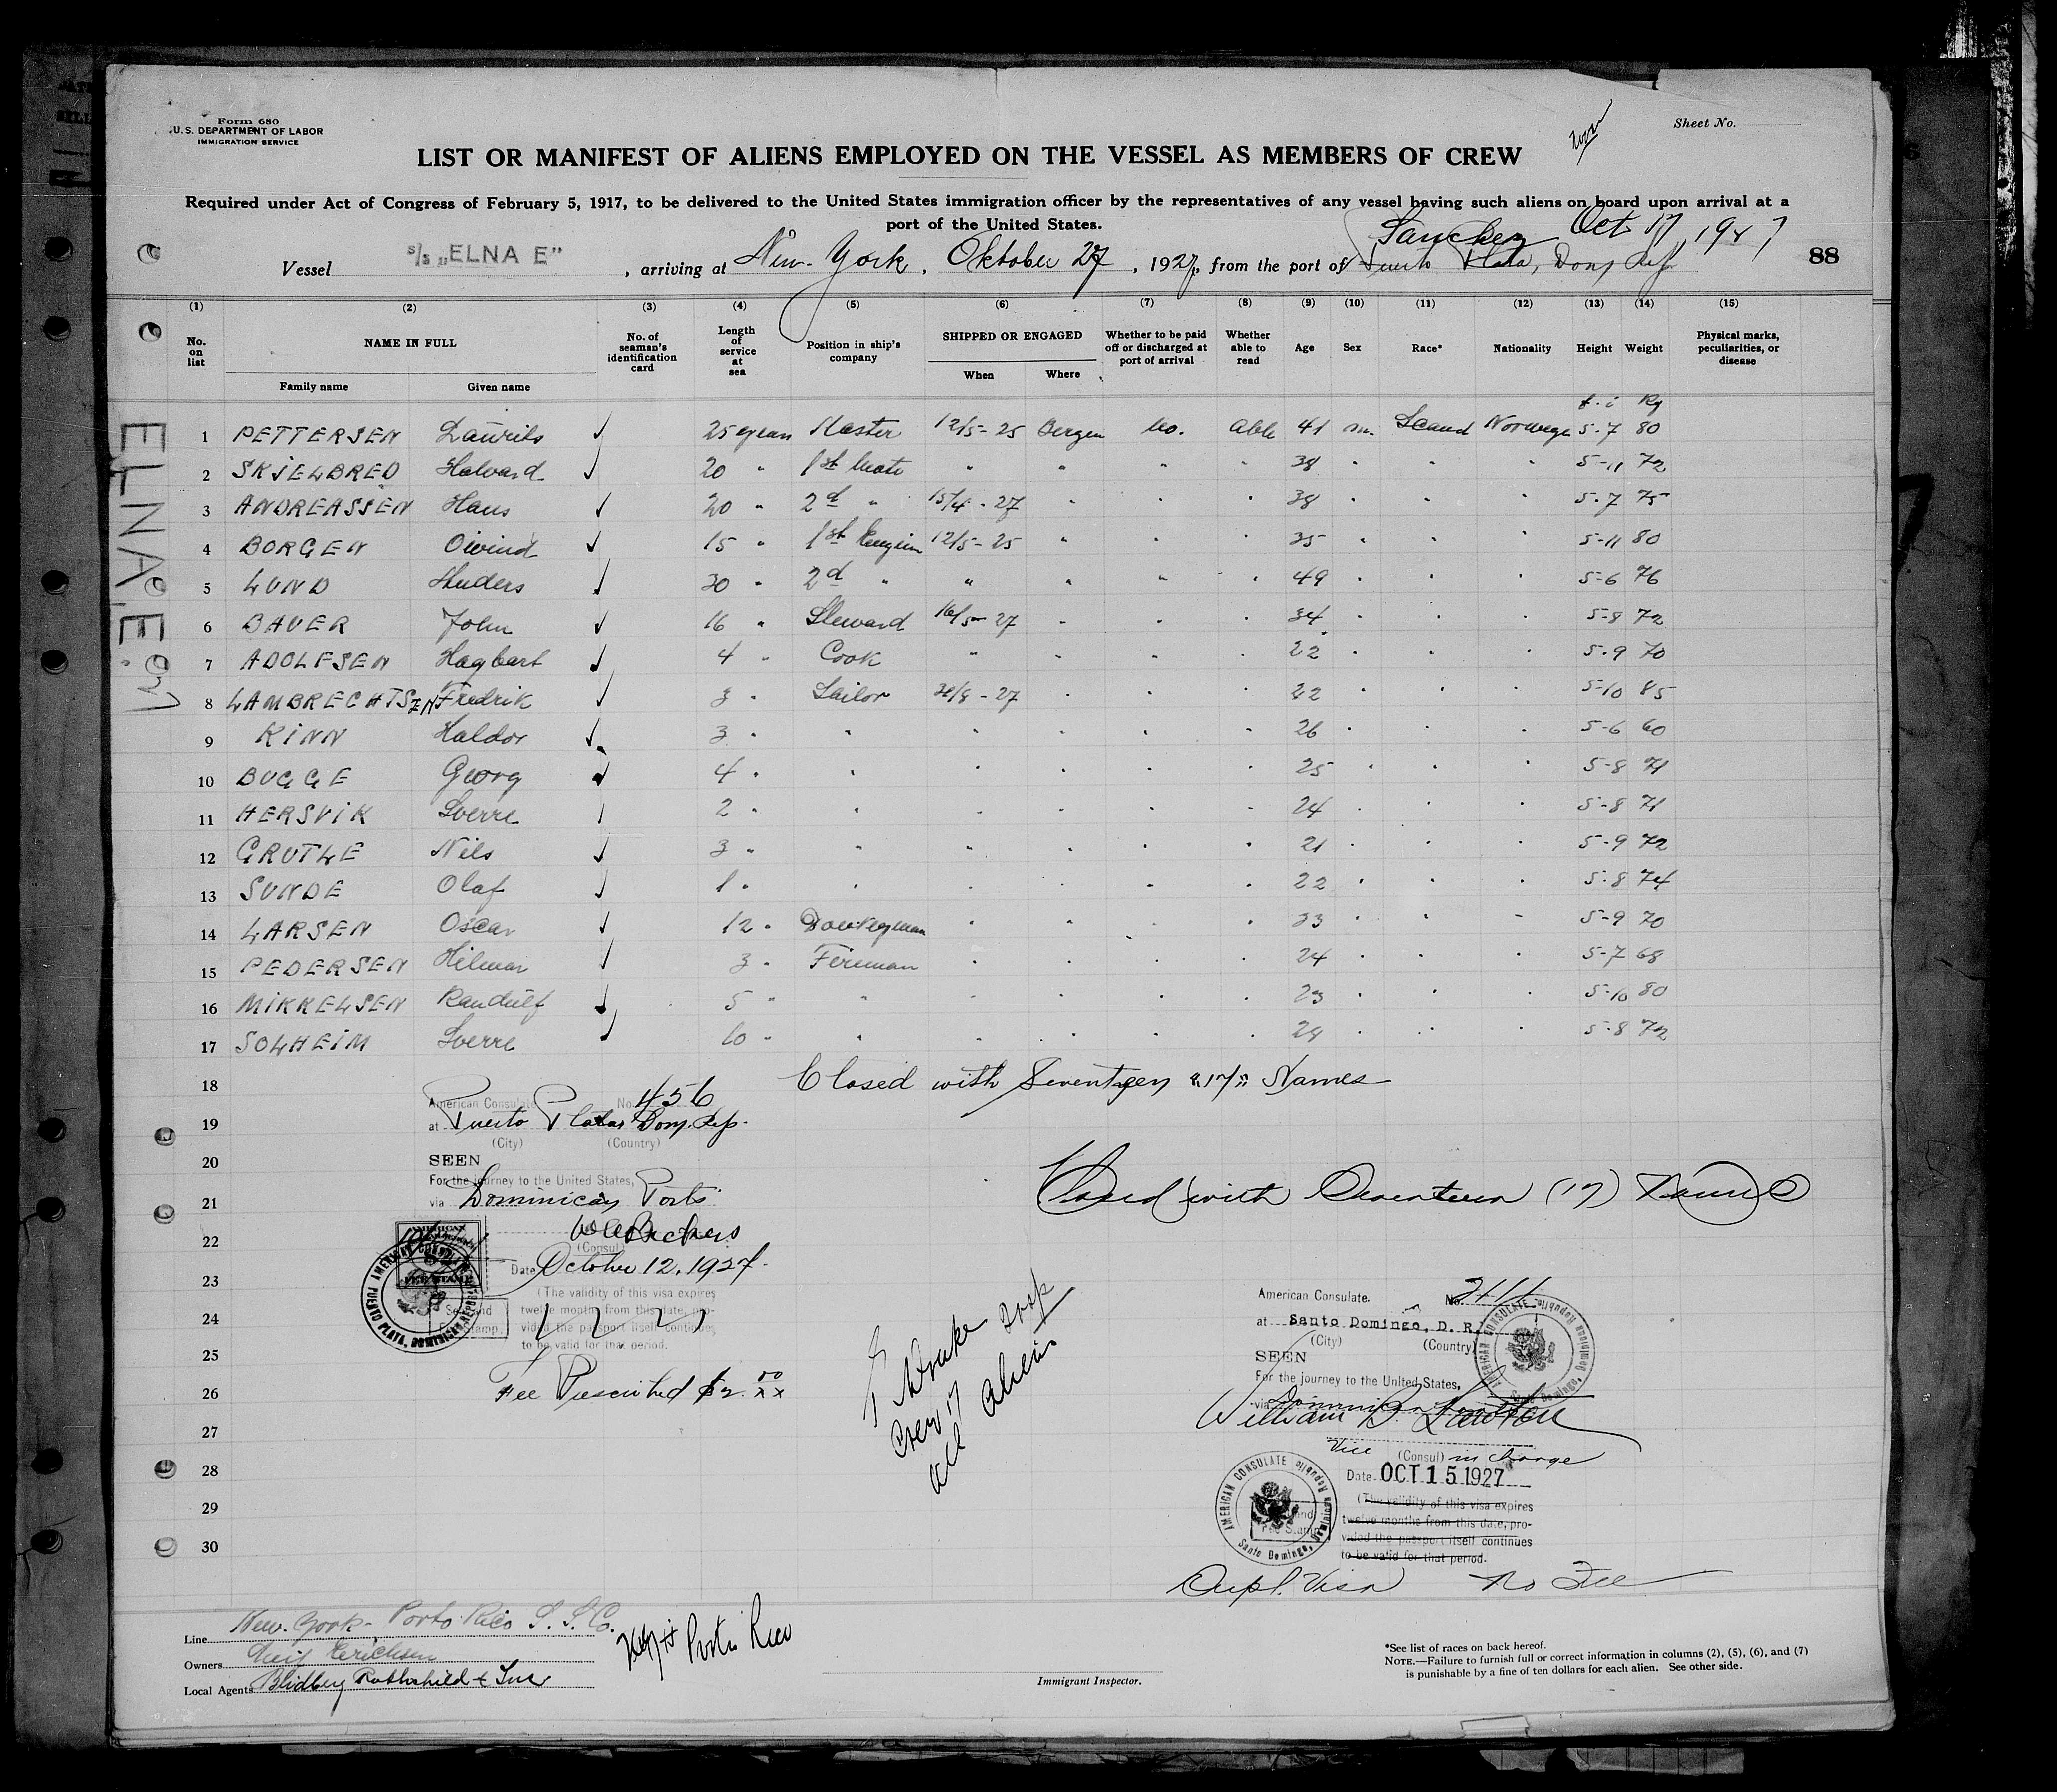 Form 680
U. S. DEPARTMENT OF LABOR
IMMIGRATION SERVICE
Sheet No.
LIST OR MANIFEST OF ALIENS EMPLOYED ON THE VESSEL AS MEMBERS OF CREW
Required under Act of Congress of February 5, 1917, to be delivered to the United States immigration officer by the representatives of any vessel having such aliens on board upon arrival at a
port of the United States.
Sanchez Oct 17, 1927
Vessel s/s „ELNA E" , arriving at New-York, Oktober 27, 1927, from the port of Puerto Plata, Dom Rep 88
(1) (2) (3) (4) (5) (6) (7) (8) (9) (10) (11) (12) (13) (14) (15)
No. on list NAME IN FULL Family name Given name No. of seaman's identification card Length of service at sea Position in ship's company SHIPPED OR ENGAGED When Where Whether to be paid off or discharged at port of arrival Whether able to read Age Sex Race* Nationality Height Weight Physical marks, peculiarities, or disease
f. i Kg
1 PETTERSEN Laurits ✓ 25 years Master 12/5-25 Bergen No. able 41 m. Scand Norwege 5-7 80
2 SKJELBRED Halvard ✓ 20 " 1st Mate " " " " 38 " " " 5-11 72
3 ANDREASSEN Hans ✓ 20 " 2d " 15/4-27 " " " 38 " " " 5-7 75
4 BORGEN Oivind ✓ 15 " 1st Engin 12/5-25 " " " 35 " " " 5-11 80
5 LUND Anders ✓ 30 " 2d " " " " " 49 " " " 5-6 76
6 BAUER John ✓ 16 " Steward 16/5-27 " " " 34 " " " 5-8 72
7 ADOLFSEN Hagbart ✓ 4 " Cook " " " " 22 " " " 5-9 70
8 LAMBRECHTSEN Fredrik ✓ 3 " Sailor /8-27 " " " 22 " " " 5-10 85
9 KINN Haldor ✓ 3 " " " " " " 26 " " " 5-6 60
10 BUGGE Georg ✓ 4 " " " " " " 25 " " " 5-8 71
11 HERSVIK Sverre ✓ 2 " " " " " " 24 " " " 5-8 71
12 GRUTLE Nils ✓ 3 " " " " " " 21 " " " 5-9 72
13 SUNDE Olaf ✓ 1 " " " " " " 22 " " " 5-8 74
14 LARSEN Oscar ✓ 12 " Donkeyman " " " " 33 " " " 5-9 70
15 PEDERSEN Hilmar ✓ 3 " Fireman " " " " 24 " " " 5-7 68
16 MIKKELSEN Randulf ✓ 5 " " " " " " 23 " " " 5-10 80
17 SOLHEIM Sverre ✓ 10 " " " " " " 29 " " " 5-8 72
18 Closed with Seventeen "17" Names
19
20
21
22
23
24
25
26
27
28
29
30
ELNA E.
American Consulate No. 456
at Puerto Plata, Dom. Rep.
(City) (Country)
SEEN
For the journey to the United States,
via Dominican Ports
(Consul)
Date October 12, 1927.
(The validity of this visa expires
twelve months from this date, pro-
vided the passport itself continues
to be valid for that period.
AMERICAN CONSULAR
FEE STAMP
PUERTO PLATA, DOMINICAN REPUBLIC
Fee Prescribed $2.00
Closed with Seventeen (17) Names
Crew 17
all aliens
American Consulate. No.
at Santo Domingo, D. R.
(City) (Country)
SEEN
For the journey to the United States,
via Dominican
William B. Lawton
Vice (Consul) in charge
Date OCT 15 1927
(The validity of this visa expires
twelve months from this date, pro-
vided the passport itself continues
to be valid for that period.
AMERICAN CONSULATE
Santo Domingo, Dominican Republic
AMERICAN CONSULATE
Santo Domingo, Dominican Republic
Dupl. Visa no Fee
Line New-York-Porto Rico S. S. Co.
Owners Erichsen
Local Agents Rothschild & Inc
Porto Rico
Immigrant Inspector.
*See list of races on back hereof.
NOTE.—Failure to furnish full or correct information in columns (2), (5), (6), and (7)
is punishable by a fine of ten dollars for each alien. See other side.